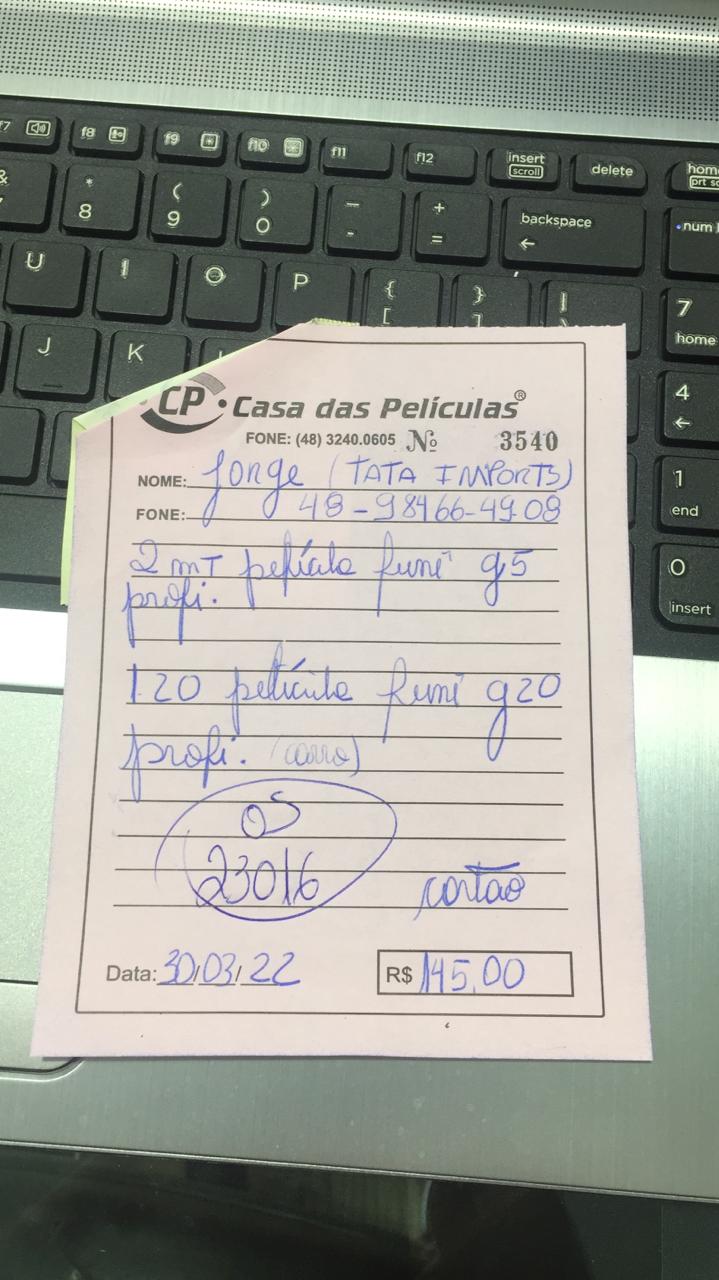 f7
f8
f9
f10
f11
f12
insert
scroll
delete
home
prt sc
&
*
8
(
9
)
0
_
-
+
=
backspace
num
U
I
O
P
{
[
}
]
|
\
7
home
J
K
L
4
1
end
0
insert
CP Casa das Películas®
FONE: (48) 3240.0605 Nº 3540
NOME: Jorge (TATA IMPORTS)
FONE: 48-98466-4908
2 mT película fumê g5
profi.
1.20 película fumê g20
profi. (carro)
OS
23016
cartão
Data: 30/03/22 R$ 145,00